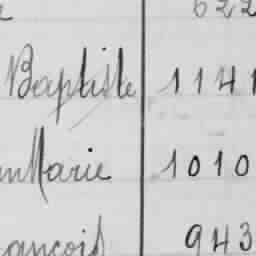 622
Baptiste 1141
Marie 1010
ançois 943